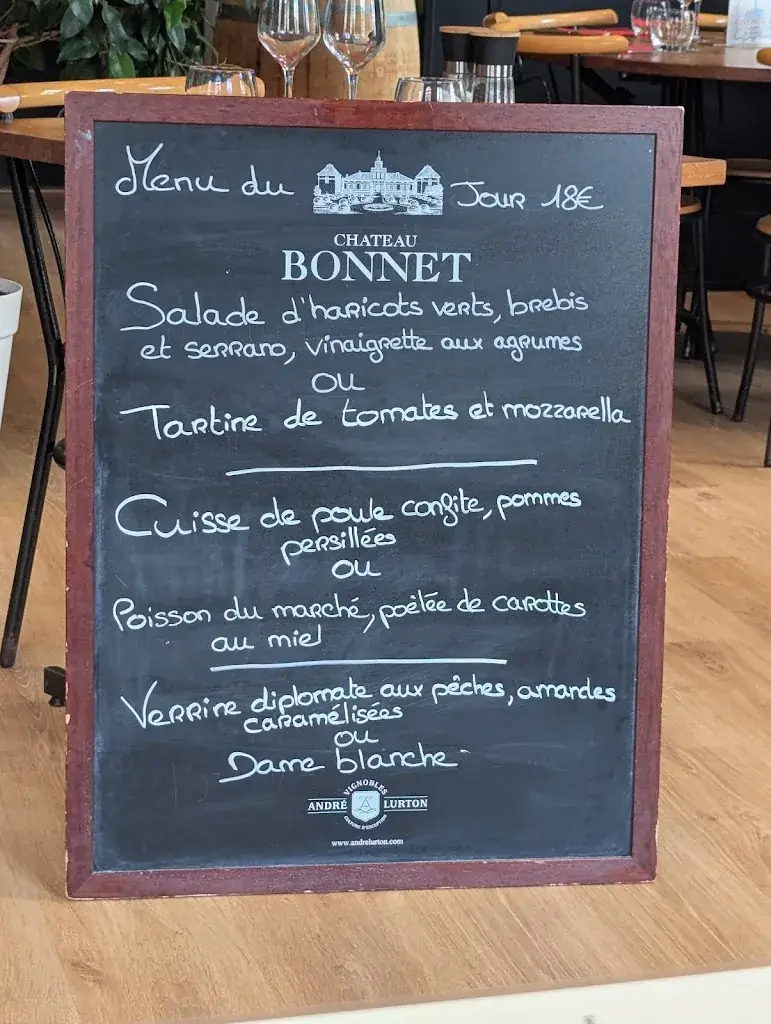 Menu du Jour 18€
CHATEAU
BONNET
Salade d'haricots verts, brebis
et serrano, vinaigrette aux agrumes
ou
Tartine de tomates et mozzarella
Cuisse de poule confite, pommes
persillées
ou
Poisson du marché, poêlée de carottes
au miel
Verrine diplomate aux pêches, amandes
caramélisées
ou
Dame blanche
VIGNOBLES
ANDRÉ LURTON
CULTURE D'EXCEPTION
www.andrelurton.com